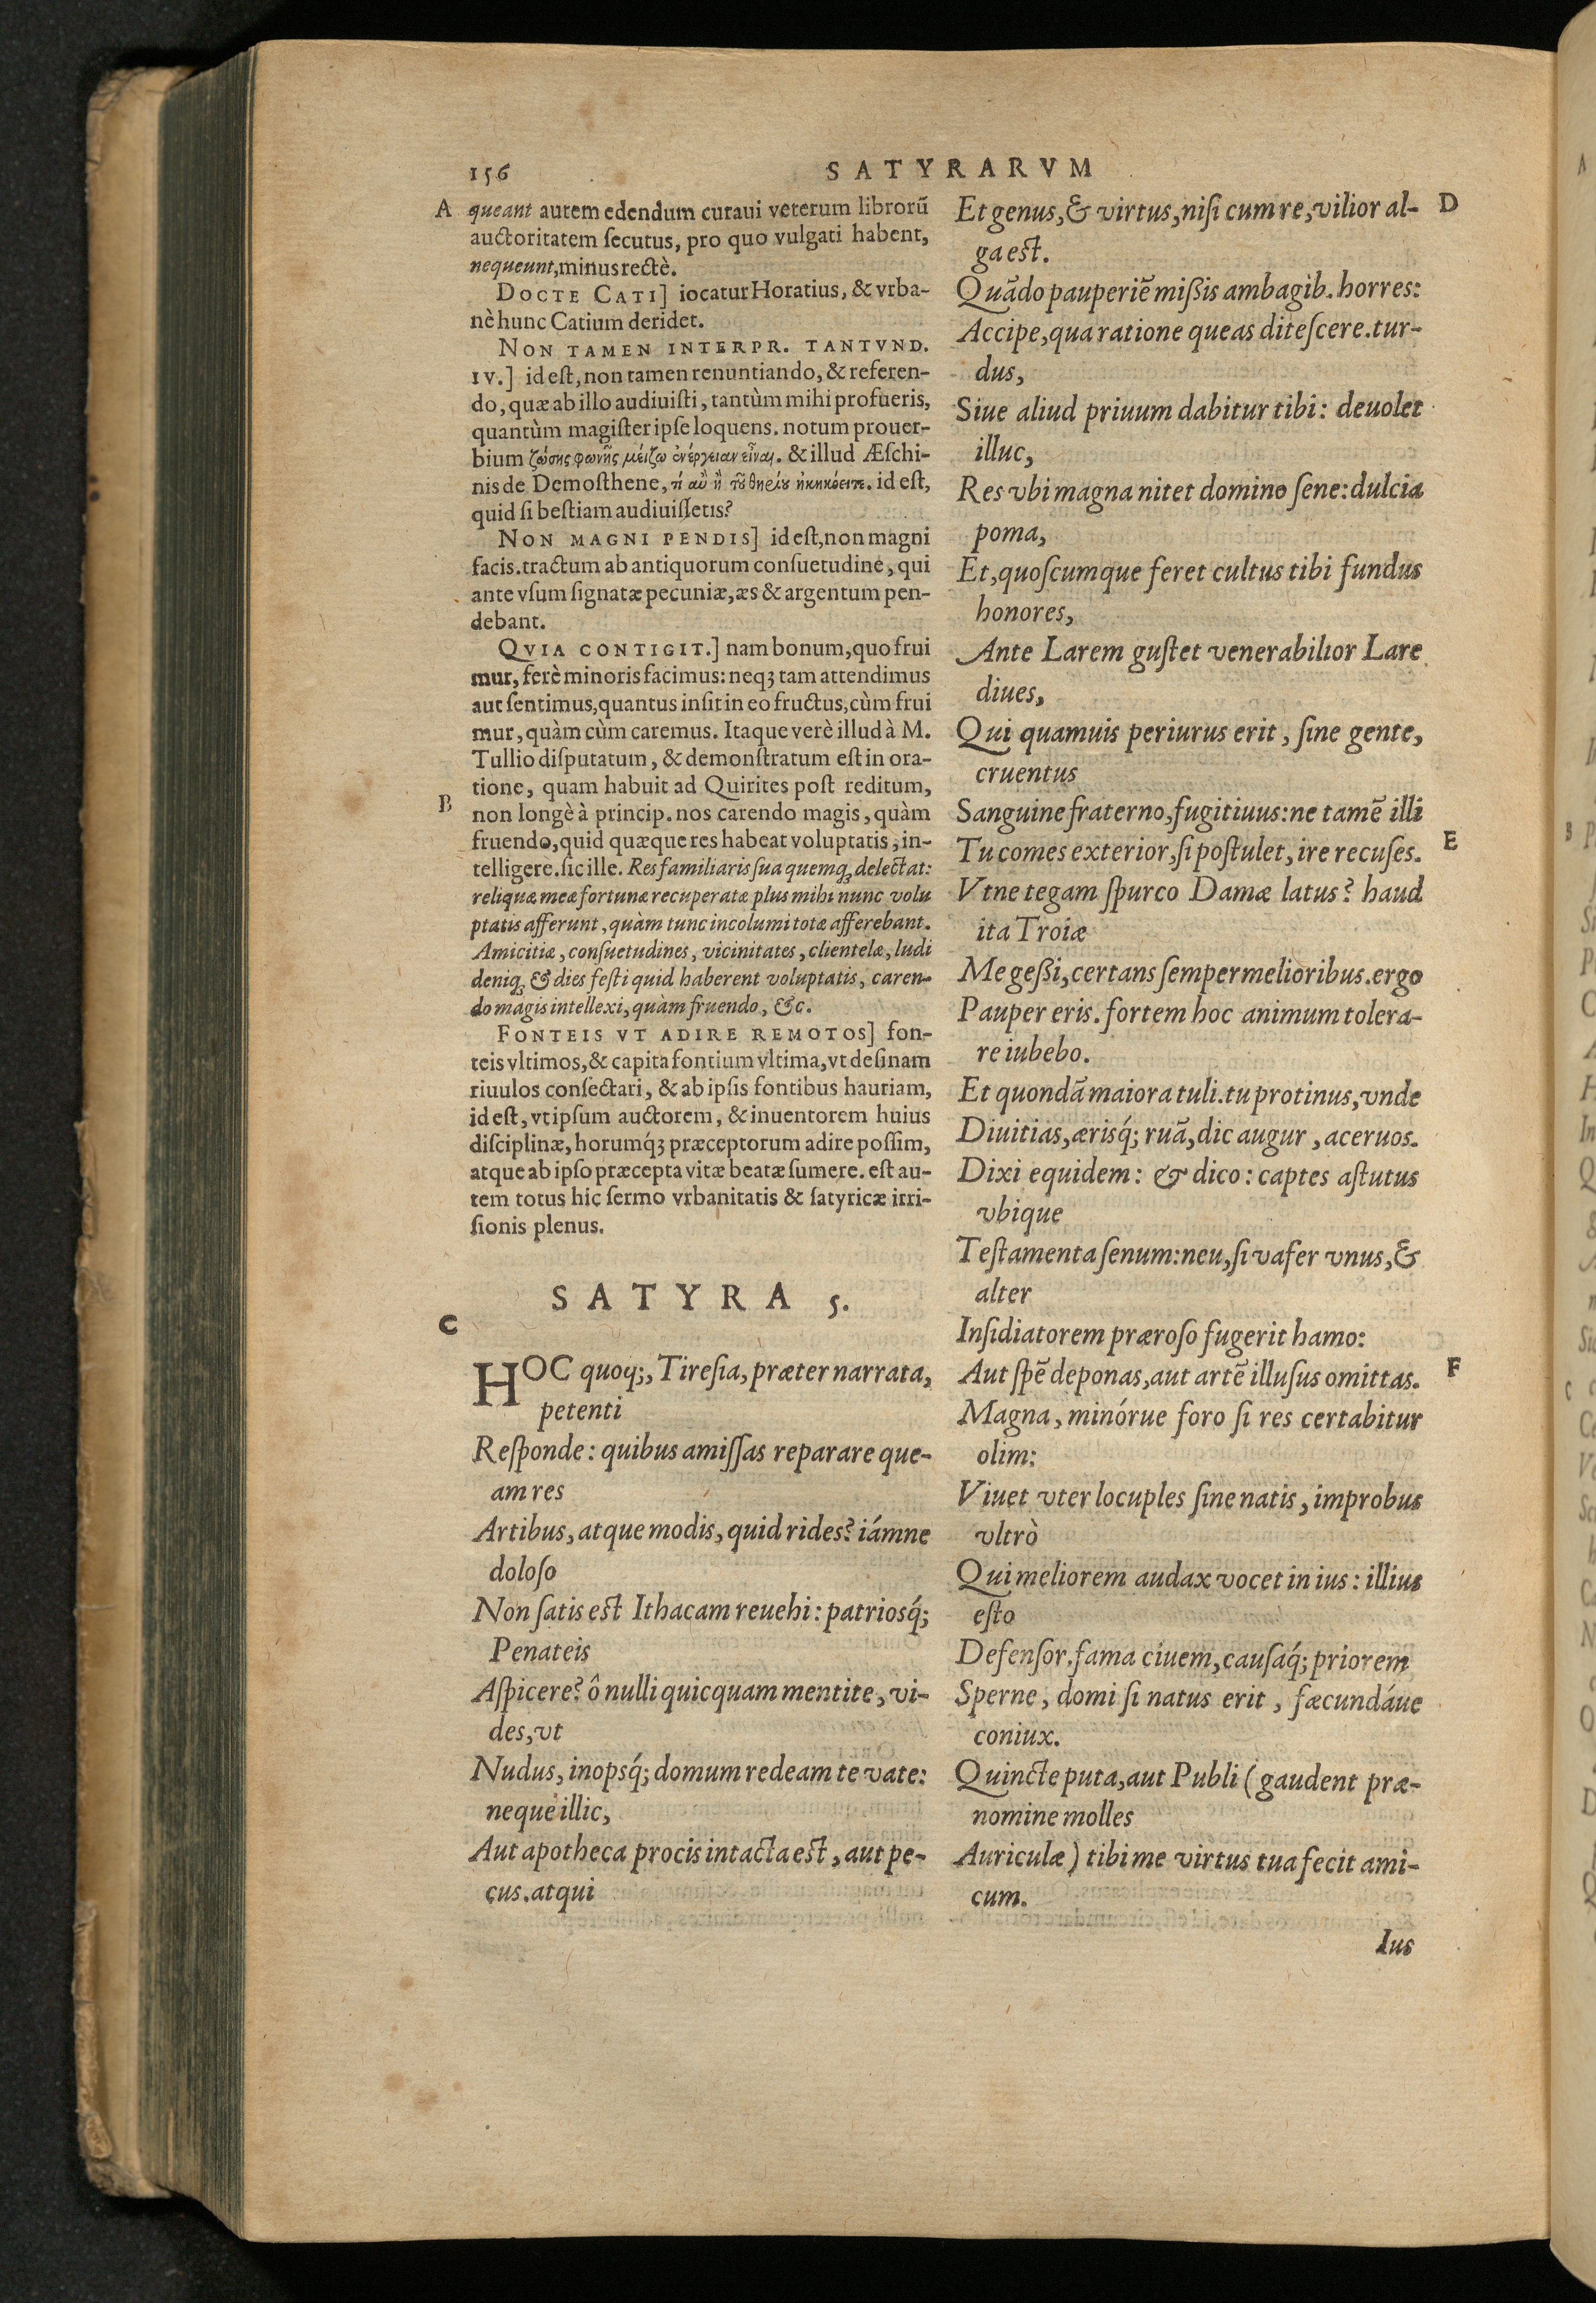 156
SATYRARVM
A
queant autem edendum curaui veterum librorũ
auctoritatem ſecutus, pro quo vulgati habent,
nequeunt, minus rectè.
DOCTE CATI] iocatur Horatius, & vrba-
nè hunc Catium deridet.
NON TAMEN INTERPR. TANTVND.
IV.] id eſt, non tamen renuntiando, & referen-
do, quæ ab illo audiuiſti, tantùm mihi profueris,
quantùm magiſter ipſe loquens. notum prouer-
bium ζώσης φωνῆς μείζω ἐνέργειαν εἶναι. & illud Æſchi-
nis de Demoſthene, τί αὖ ἢ τοῦ θηρίου ἠκηκόειτε. id eſt,
quid ſi beſtiam audiuiſſetis?
NON MAGNI PENDIS] id eſt, non magni
facis. tractum ab antiquorum conſuetudine, qui
ante vſum ſignatæ pecuniæ, æs & argentum pen-
debant.
QVIA CONTIGIT.] nam bonum, quo frui
mur, ferè minoris facimus: neqꝫ tam attendimus
aut ſentimus, quantus inſit in eo fructus, cùm frui
mur, quàm cùm caremus. Itaque verè illud à M.
Tullio diſputatum, & demonſtratum eſt in ora-
tione, quam habuit ad Quirites poſt reditum,
B
non longè à princip. nos carendo magis, quàm
fruendo, quid quæque res habeat voluptatis, in-
telligere. ſic ille. Res familiaris ſua quemqꝫ delectat:
reliquæ meæ fortunæ recuperatæ plus mihi nunc volu
ptatis afferunt, quàm tunc incolumi totæ afferebant.
Amicitiæ, conſuetudines, vicinitates, clientelæ, ludi
deniqꝫ & dies feſti quid haberent voluptatis, caren-
do magis intellexi, quàm fruendo, &c.
FONTEIS VT ADIRE REMOTOS] fon-
teis vltimos, & capita fontium vltima, vt deſinam
riuulos conſectari, & ab ipſis fontibus hauriam,
id eſt, vt ipſum auctorem, & inuentorem huius
diſciplinæ, horumq́ꝫ præceptorum adire poſſim,
atque ab ipſo præcepta vitæ beatæ ſumere. eſt au-
tem totus hic ſermo vrbanitatis & ſatyricæ irri-
ſionis plenus.
SATYRA 5.
C
HOC quoq;, Tireſia, præter narrata,
petenti
Reſponde: quibus amiſſas reparare que-
am res
Artibus, atque modis, quid rides? iámne
doloſo
Non ſatis eſt Ithacam reuehi: patriosq́;
Penateis
Aſpicere? ô nulli quicquam mentite, vi-
des, vt
Nudus, inopsq́; domum redeam te vate:
neque illic,
Aut apotheca procis intacta eſt, aut pe-
cus. atqui
Et genus, & virtus, niſi cum re, vilior al-
D
ga eſt.
Quãdo pauperiẽ mißis ambagib. horres:
Accipe, qua ratione queas diteſcere. tur-
dus,
Siue aliud priuum dabitur tibi: deuolet
illuc,
Res vbi magna nitet domino ſene: dulcia
poma,
Et, quoſcumque feret cultus tibi fundus
honores,
Ante Larem guſtet venerabilior Lare
diues,
Qui quamuis periurus erit, ſine gente,
cruentus
Sanguine fraterno, fugitiuus: ne tamẽ illi
Tu comes exterior, ſi poſtulet, ire recuſes.
E
Vtne tegam ſpurco Damæ latus? haud
ita Troiæ
Me geßi, certans ſemper melioribus. ergo
Pauper eris. fortem hoc animum tolera-
re iubebo.
Et quondã maiora tuli. tu protinus, vnde
Diuitias, ærisq́; ruã, dic augur, aceruos.
Dixi equidem: & dico: captes aſtutus
vbique
Teſtamenta ſenum: neu, ſi vafer vnus, &
alter
Inſidiatorem præroſo fugerit hamo:
Aut ſpẽ deponas, aut artẽ illuſus omittas.
F
Magna, minórue foro ſi res certabitur
olim:
Viuet vter locuples ſine natis, improbus
vltrò
Qui meliorem audax vocet in ius: illius
eſto
Defenſor. fama ciuem, cauſaq́; priorem
Sperne, domi ſi natus erit, fæcundáue
coniux.
Quincte puta, aut Publi (gaudent præ-
nomine molles
Auriculæ) tibi me virtus tua fecit ami-
cum.
Ius